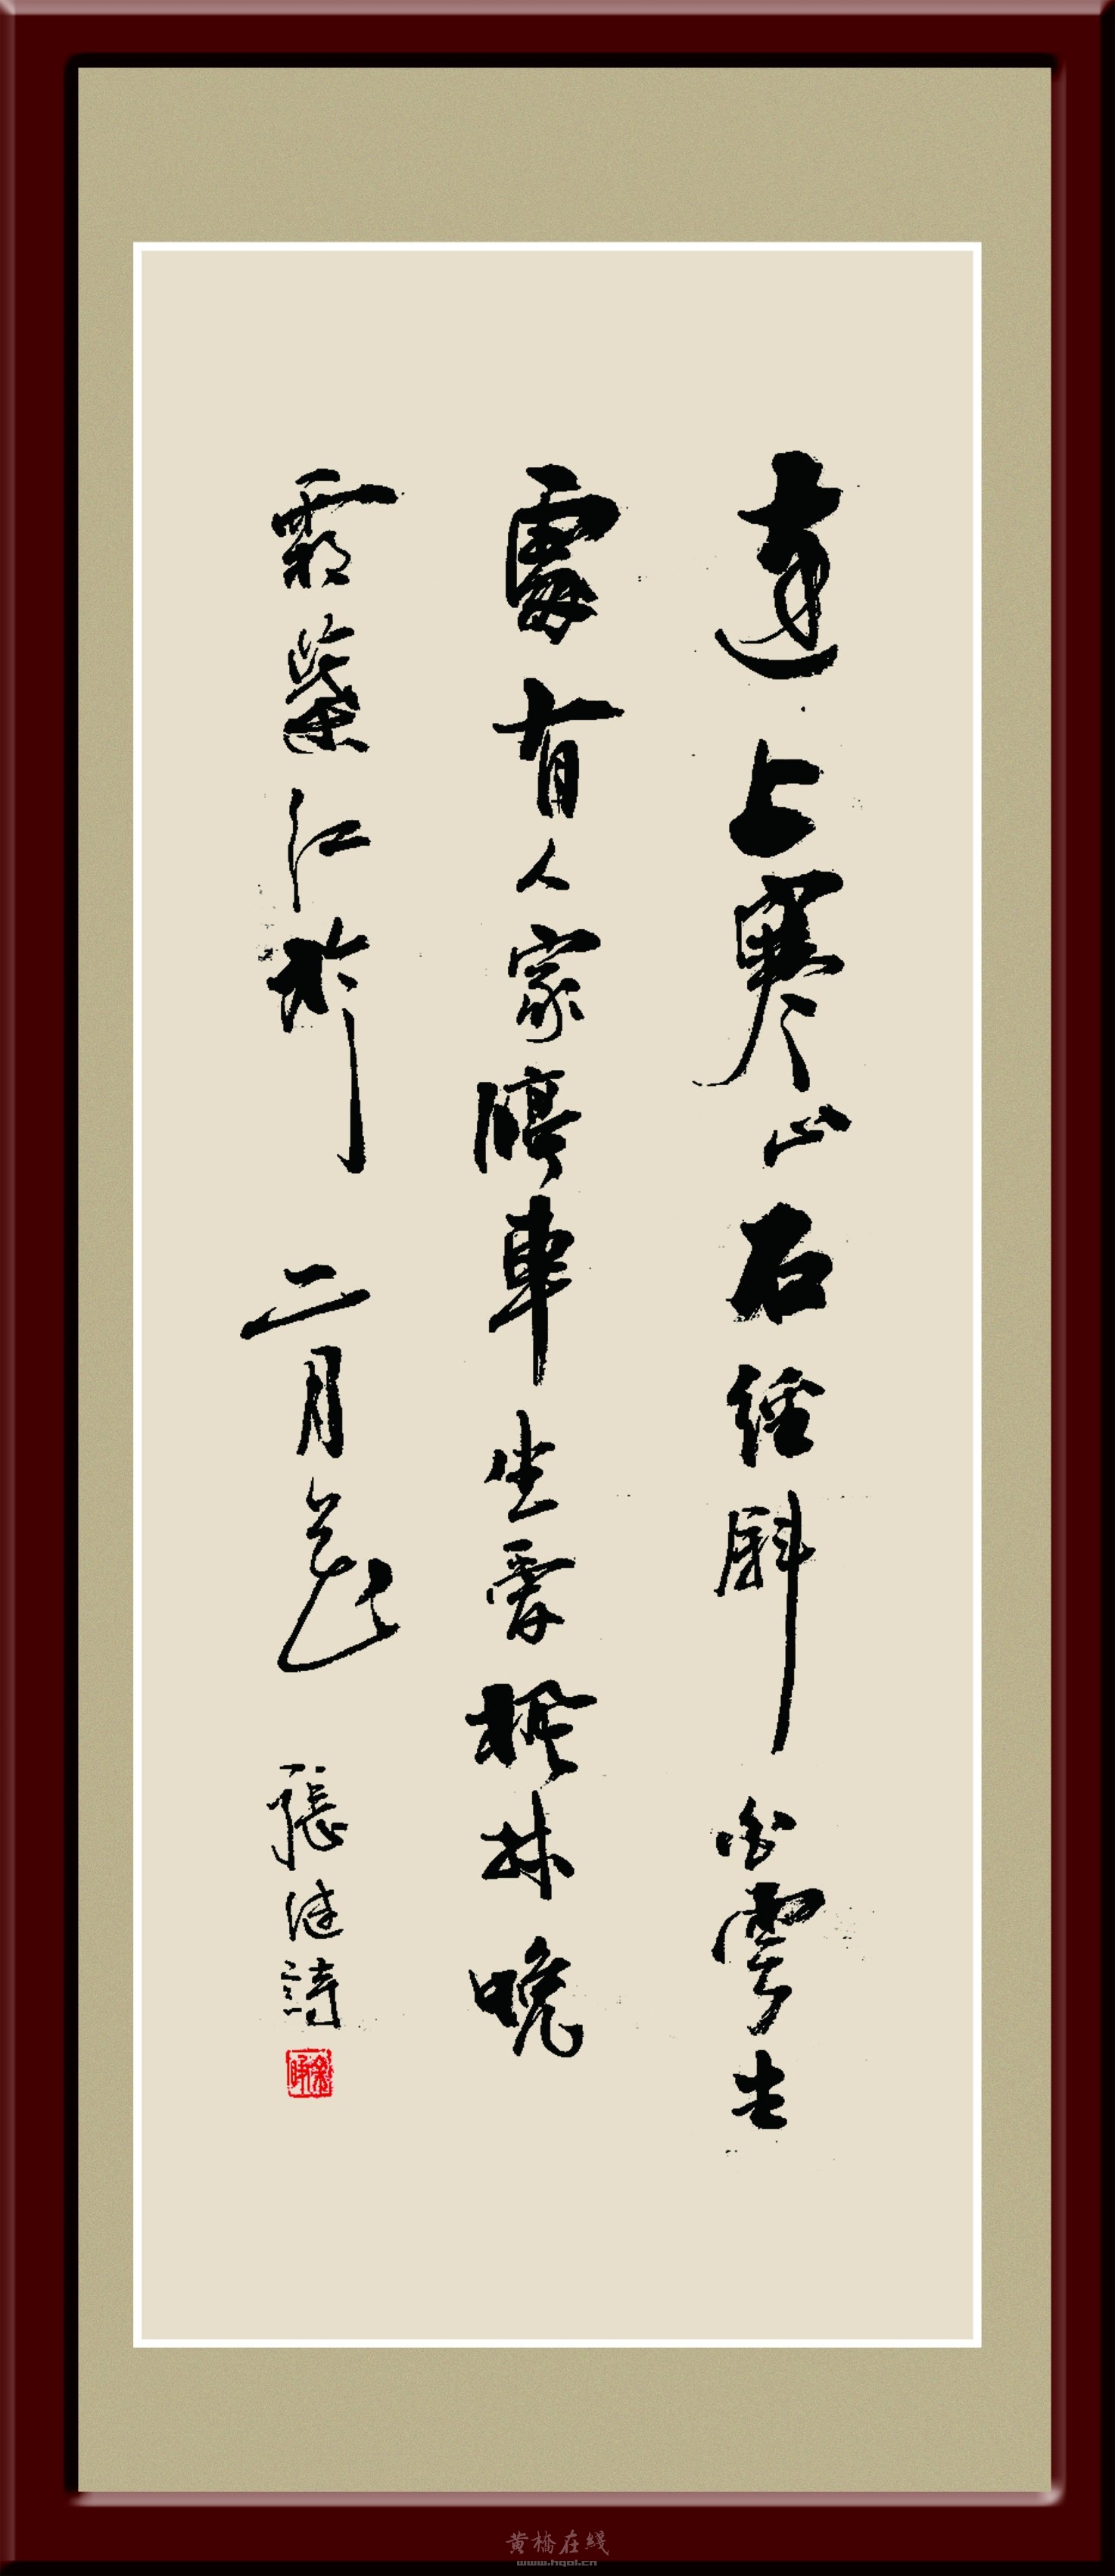 遠上寒山石徑斜白雲生
處有人家停車坐愛楓林晚
霜葉紅於二月花
張继詩
黄橋在綫
www.hqol.cn